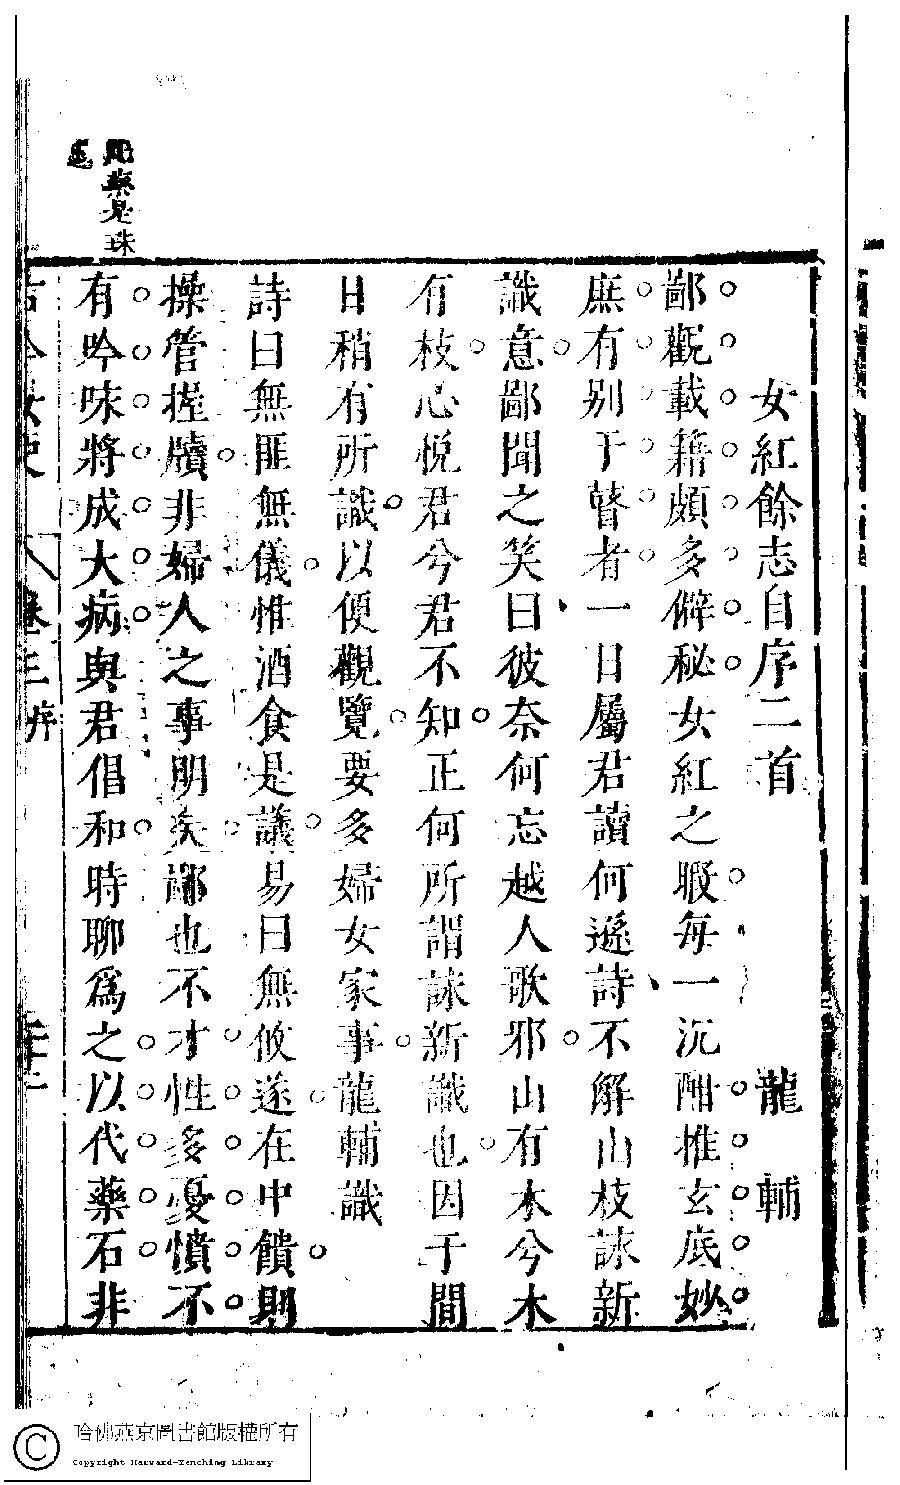 女紅餘志自序二首　龍輔
鄙觀載籍頗多僻秘女紅之暇每一沉酣推玄底妙
庶有别于瞽者一日屬君讀何遜詩不解山枝詠新
識意鄙聞之笑曰彼奈何忘越人歌邪山有木兮木
有枝心悅君兮君不知正何所謂詠新識也因于間
日稍有所識以便觀覽要多婦女家事龍輔識
詩曰無匪無儀惟酒食是議易曰無攸遂在中饋則
操管握牘非婦人之事明矣鄙也不才性多憂憤不
有吟味將成大病與君倡和時聊爲之以代藥石非
古今女史 卷三 序
哈佛燕京圖書館版權所有
Copyright Harvard-Yenching Library